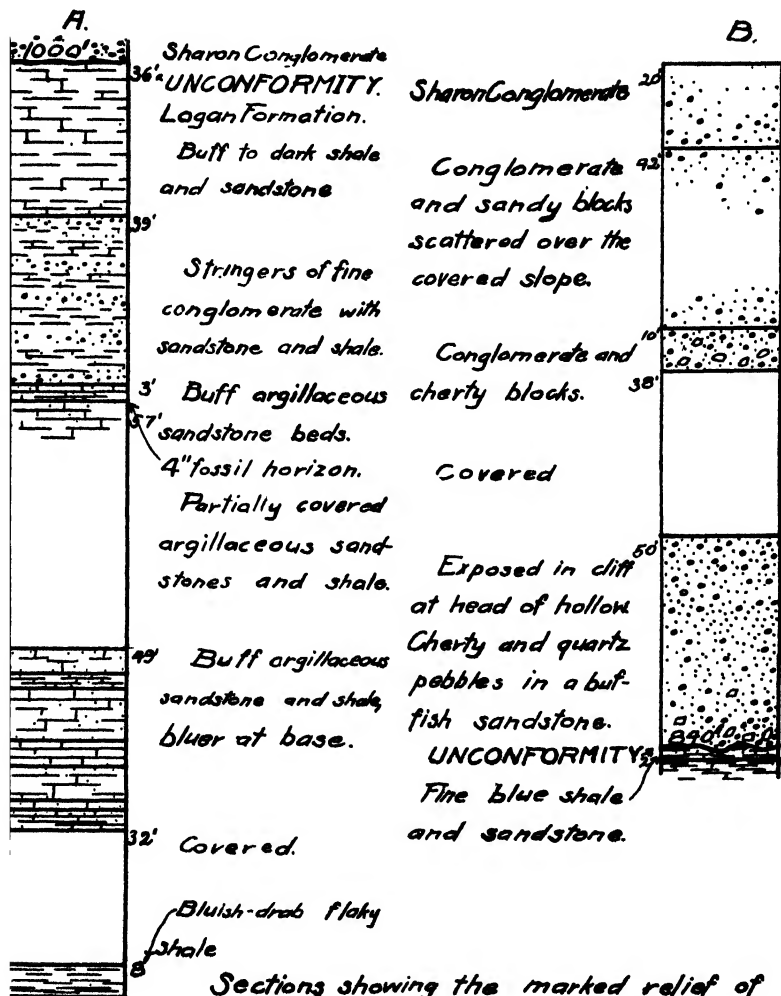 A.
1000'
Sharon Conglomerate
36'
UNCONFORMITY.
Logan Formation.
Buff to dark shale
and sandstone
39'
Stringers of fine
conglomerate with
sandstone and shale.
3'
Buff argillaceous
sandstone beds.
57'
4" fossil horizon.
Partially covered
argillaceous sand-
stones and shale.
49'
Buff argillaceous
sandstone and shale,
bluer at base.
32'
Covered.
Bluish-drab flaky
shale
8'
B.
20'
Sharon Conglomerate
92'
Conglomerate
and sandy blocks
scattered over the
covered slope.
10'
Conglomerate and
cherty blocks.
38'
Covered
50'
Exposed in cliff
at head of hollow.
Cherty and quartz
pebbles in a buf-
fish sandstone.
840'
UNCONFORMITY
2'
Fine blue shale
and sandstone.
Sections showing the marked relief of